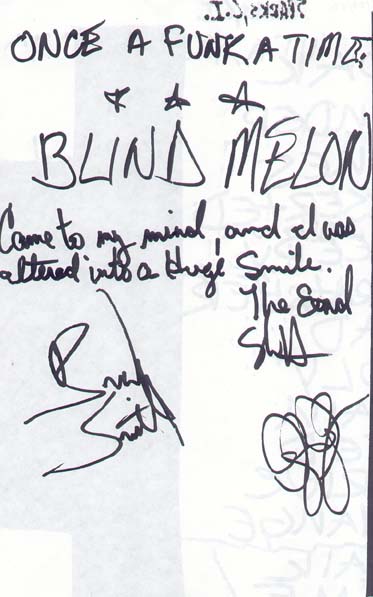 ONCE A FUNK A TIME.
BLIND MELON
Came to my mind, and I was
altered into a Huge Smile.
The End